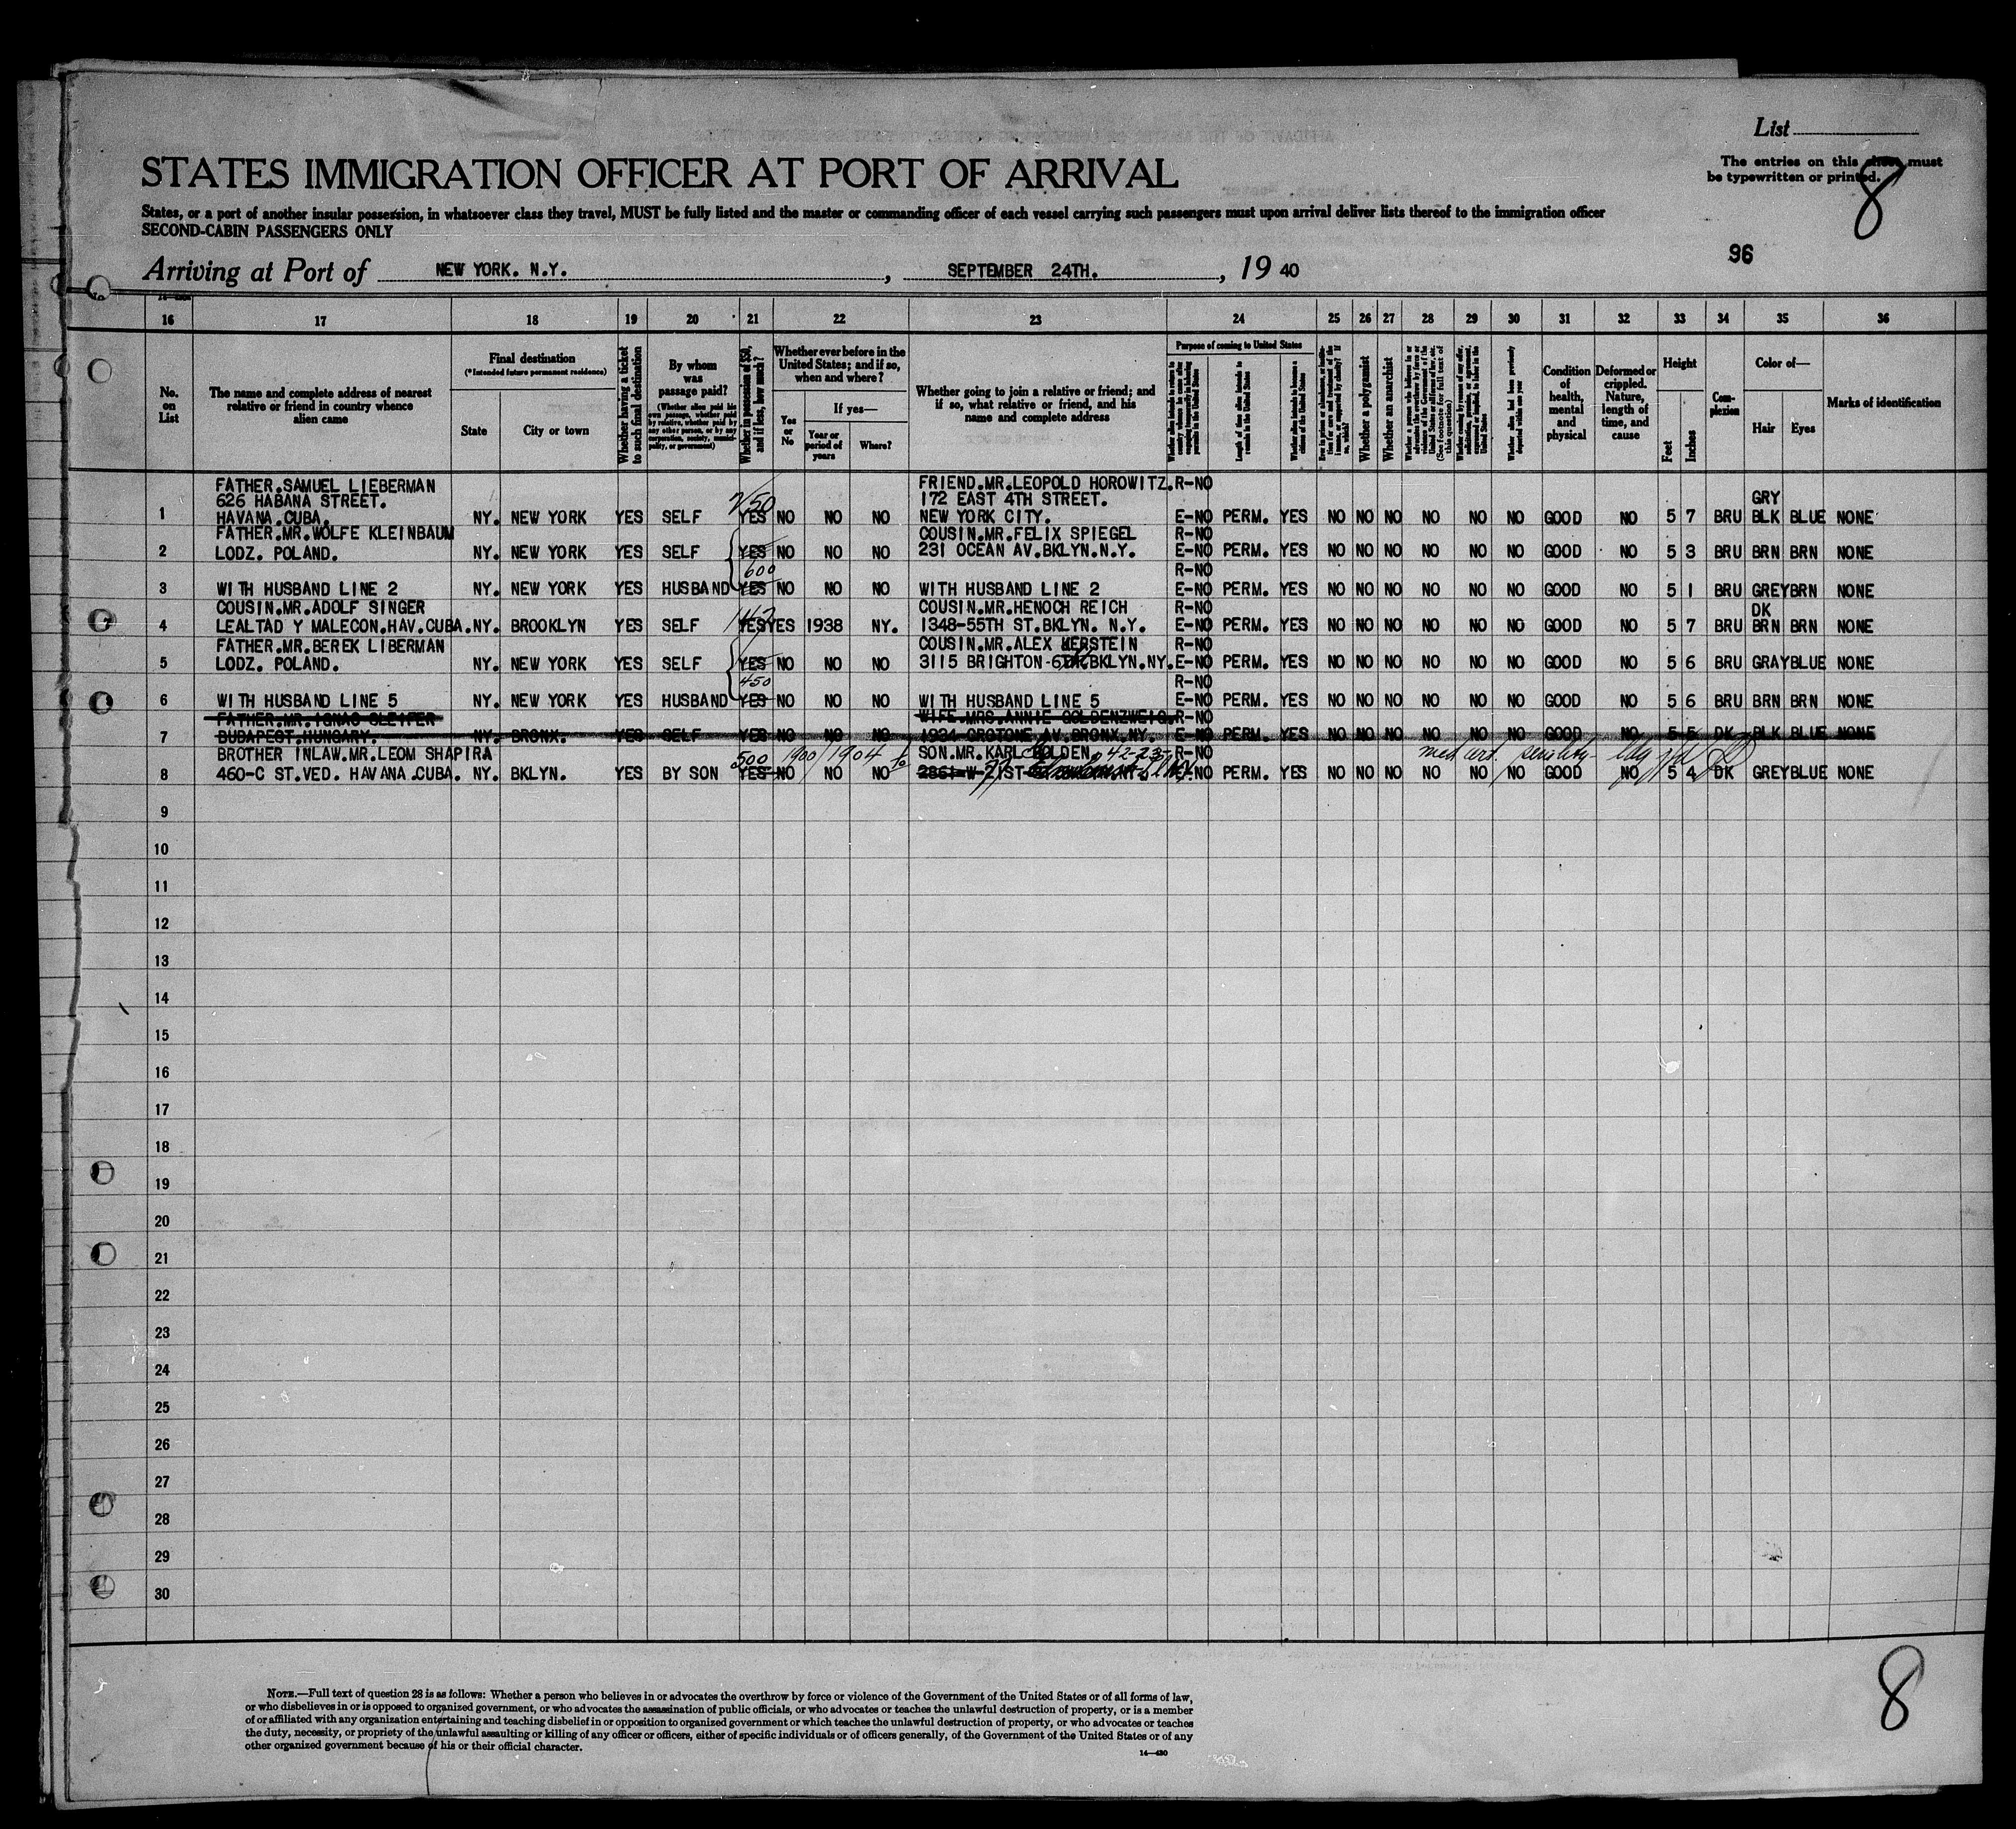 List
The entries on this sheet must
be typewritten or printed.
8
STATES IMMIGRATION OFFICER AT PORT OF ARRIVAL
States, or a port of another insular possession, in whatsoever class they travel, MUST be fully listed and the master or commanding officer of each vessel carrying such passengers must upon arrival deliver lists thereof to the immigration officer
SECOND-CABIN PASSENGERS ONLY
96
Arriving at Port of NEW YORK. N.Y. , SEPTEMBER 24TH. , 19 40
16 17 18 19 20 21 22 23 24 25 26 27 28 29 30 31 32 33 34 35 36
No. on List
The name and complete address of nearest relative or friend in country whence alien came
Final destination
(*Intended future permanent residence)
State
City or town
Whether having a ticket to such final destination
By whom was passage paid?
(Whether alien paid his own passage, whether paid by relative, whether paid by any other person, or by any corporation, society, municipality, or government)
Whether in possession of $50, and if less, how much?
Whether ever before in the United States; and if so, when and where?
Yes or No
If yes—
Year or period of years
Where?
Whether going to join a relative or friend; and if so, what relative or friend, and his name and complete address
Purpose of coming to United States
Length of time alien intends to remain in the United States
Whether alien intends to become a citizen of the United States
Whether a polygamist
Whether an anarchist
Whether alien has been previously deported within one year
Condition of health, mental and physical
Deformed or crippled. Nature, length of time, and cause
Height
Feet
Inches
Complexion
Color of—
Hair
Eyes
Marks of identification
FATHER.SAMUEL LIEBERMAN FRIEND.MR.LEOPOLD HOROWITZ. R-NO
626 HABANA STREET. 250 172 EAST 4TH STREET. GRY
1 HAVANA.CUBA. NY. NEW YORK YES SELF YES NO NO NO NEW YORK CITY. E-NO PERM. YES NO NO NO NO NO NO GOOD NO 5 7 BRU BLK BLUE NONE
FATHER.MR.WOLFE KLEINBAUM COUSIN.MR.FELIX SPIEGEL R-NO
2 LODZ. POLAND. NY. NEW YORK YES SELF YES NO NO NO 231 OCEAN AV.BKLYN.N.Y. E-NO PERM. YES NO NO NO NO NO NO GOOD NO 5 3 BRU BRN BRN NONE
600 R-NO
3 WITH HUSBAND LINE 2 NY. NEW YORK YES HUSBAND YES NO NO NO WITH HUSBAND LINE 2 E-NO PERM. YES NO NO NO NO NO NO GOOD NO 5 1 BRU GREY BRN NONE
COUSIN.MR.ADOLF SINGER COUSIN.MR.HENOCH REICH R-NO DK
4 LEALTAD Y MALECON.HAV.CUBA. NY. BROOKLYN YES SELF YES YES 1938 NY. 1348-55TH ST.BKLYN. N.Y. E-NO PERM. YES NO NO NO NO NO NO GOOD NO 5 7 BRU BRN BRN NONE
FATHER.MR.BEREK LIBERMAN COUSIN.MR.ALEX KERSTEIN R-NO
5 LODZ. POLAND. NY. NEW YORK YES SELF YES NO NO NO 3115 BRIGHTON BKLYN.NY. E-NO PERM. YES NO NO NO NO NO NO GOOD NO 5 6 BRU GRAY BLUE NONE
450 R-NO
6 WITH HUSBAND LINE 5 NY. NEW YORK YES HUSBAND YES NO NO NO WITH HUSBAND LINE 5 E-NO PERM. YES NO NO NO NO NO NO GOOD NO 5 6 BRU BRN BRN NONE
FATHER.MR.IGNAC WIFE.MRS.ANNIE GOLDENZWEIG. R-NO
7 BUDAPEST.HUNGARY. NY. BRONX. YES SELF YES NO NO NO 1934 CROTONE AV.BRONX.NY. E-NO PERM. YES NO NO NO NO NO NO GOOD NO 5 5 DK BLK BLUE NONE
BROTHER INLAW.MR.LEOM SHAPIRA 500 1900/1904 SON.MR.KARL GOLDEN. 42-25 R-NO med cert. senility
8 460-C ST.VED. HAVANA.CUBA. NY. BKLYN. YES BY SON YES NO NO NO NO PERM. YES NO NO NO NO NO NO GOOD NO 5 4 DK GREY BLUE NONE
9
10
11
12
13
14
15
16
17
18
19
20
21
22
23
24
25
26
27
28
29
30
NOTE.—Full text of question 28 is as follows: Whether a person who believes in or advocates the overthrow by force or violence of the Government of the United States or of all forms of law,
or who disbelieves in or is opposed to organized government, or who advocates the assassination of public officials, or who advocates or teaches the unlawful destruction of property, or is a member
of or affiliated with any organization entertaining and teaching disbelief in or opposition to organized government or which teaches the unlawful destruction of property, or who advocates or teaches
the duty, necessity, or propriety of the unlawful assaulting or killing of any officer or officers, either of specific individuals or of officers generally, of the Government of the United States or of any
other organized government because of his or their official character.
14—430
8